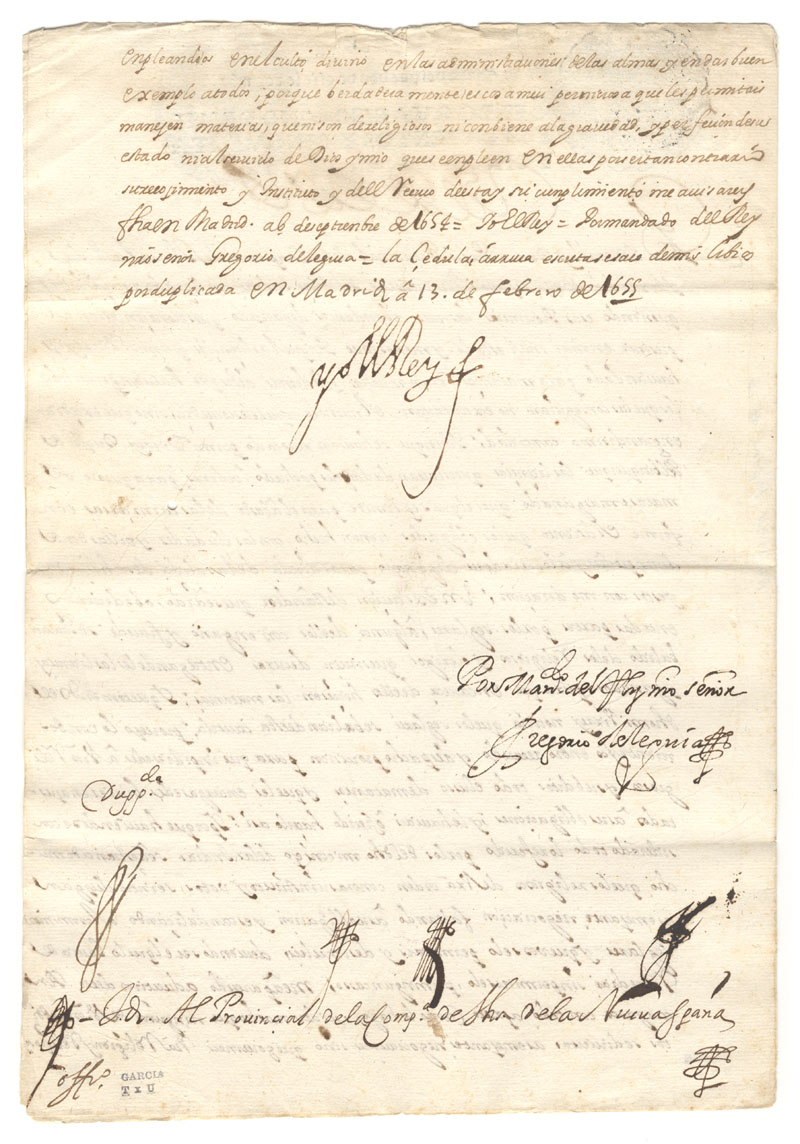 enpleandose en el culto divino en las administraciones de las almas y en dar buen
exemplo a todos, porque berdaderamente es cosa mui perniciosa que les permitais
manejen materias, que ni son de religiosos ni conbiene a la grauedad, y perfecion de su
estado ni al seruicio de Dios y mio que se enpleen en ellas por ser tan contrario
su recojimiento y Instituto y del Recivo desta y su cunplimiento me auisareys
fha en Madrid. a de septiembre de 1654 = Yo El Rey = Por mandado del Rey
nro señor Gregorio de leguia = la Çedula arriua escrita se saco de mis libros
por duplicada en Madrid â 13. de febrero de 1655
yo el Rey
Por Mando. del Rey nro señor
Gregorio de leguia
Dupp.da
Al Provincial de la Comp.a de Jhs de la Nueva españa
offo.
GARCIA
T x U